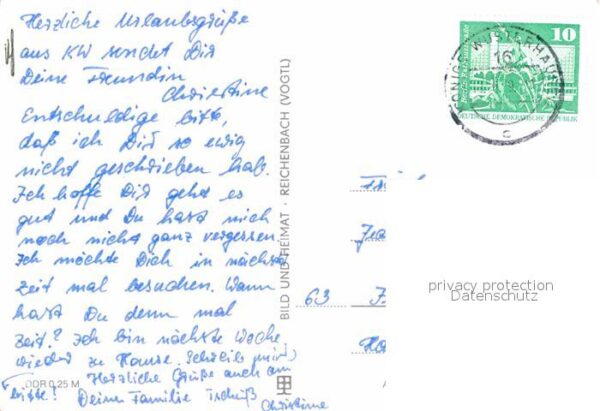 Herzliche Urlaubsgrüße
aus KW sendet Dir
Deine Freundin
Christine
Entschuldige bitte,
daß ich Dir so ewig
nicht geschrieben hab.
Ich hoffe Dir geht es
gut und Du hast mich
noch nicht ganz vergessen.
Ich möchte Dich in nächster
Zeit mal besuchen. Wann
hast Du denn mal
Zeit? Ich bin nächste Woche
wieder zu Hause. Schreib mir
bitte! Herzliche Grüße auch an
Deine Familie Tschüß
Christine
DDR 0,25 M
BILD UND HEIMAT · REICHENBACH (VOGTL)
10
DEUTSCHE DEMOKRATISCHE REPUBLIK
KÖNIGS WUSTERHAUSEN
16
c
63
privacy protection
Datenschutz